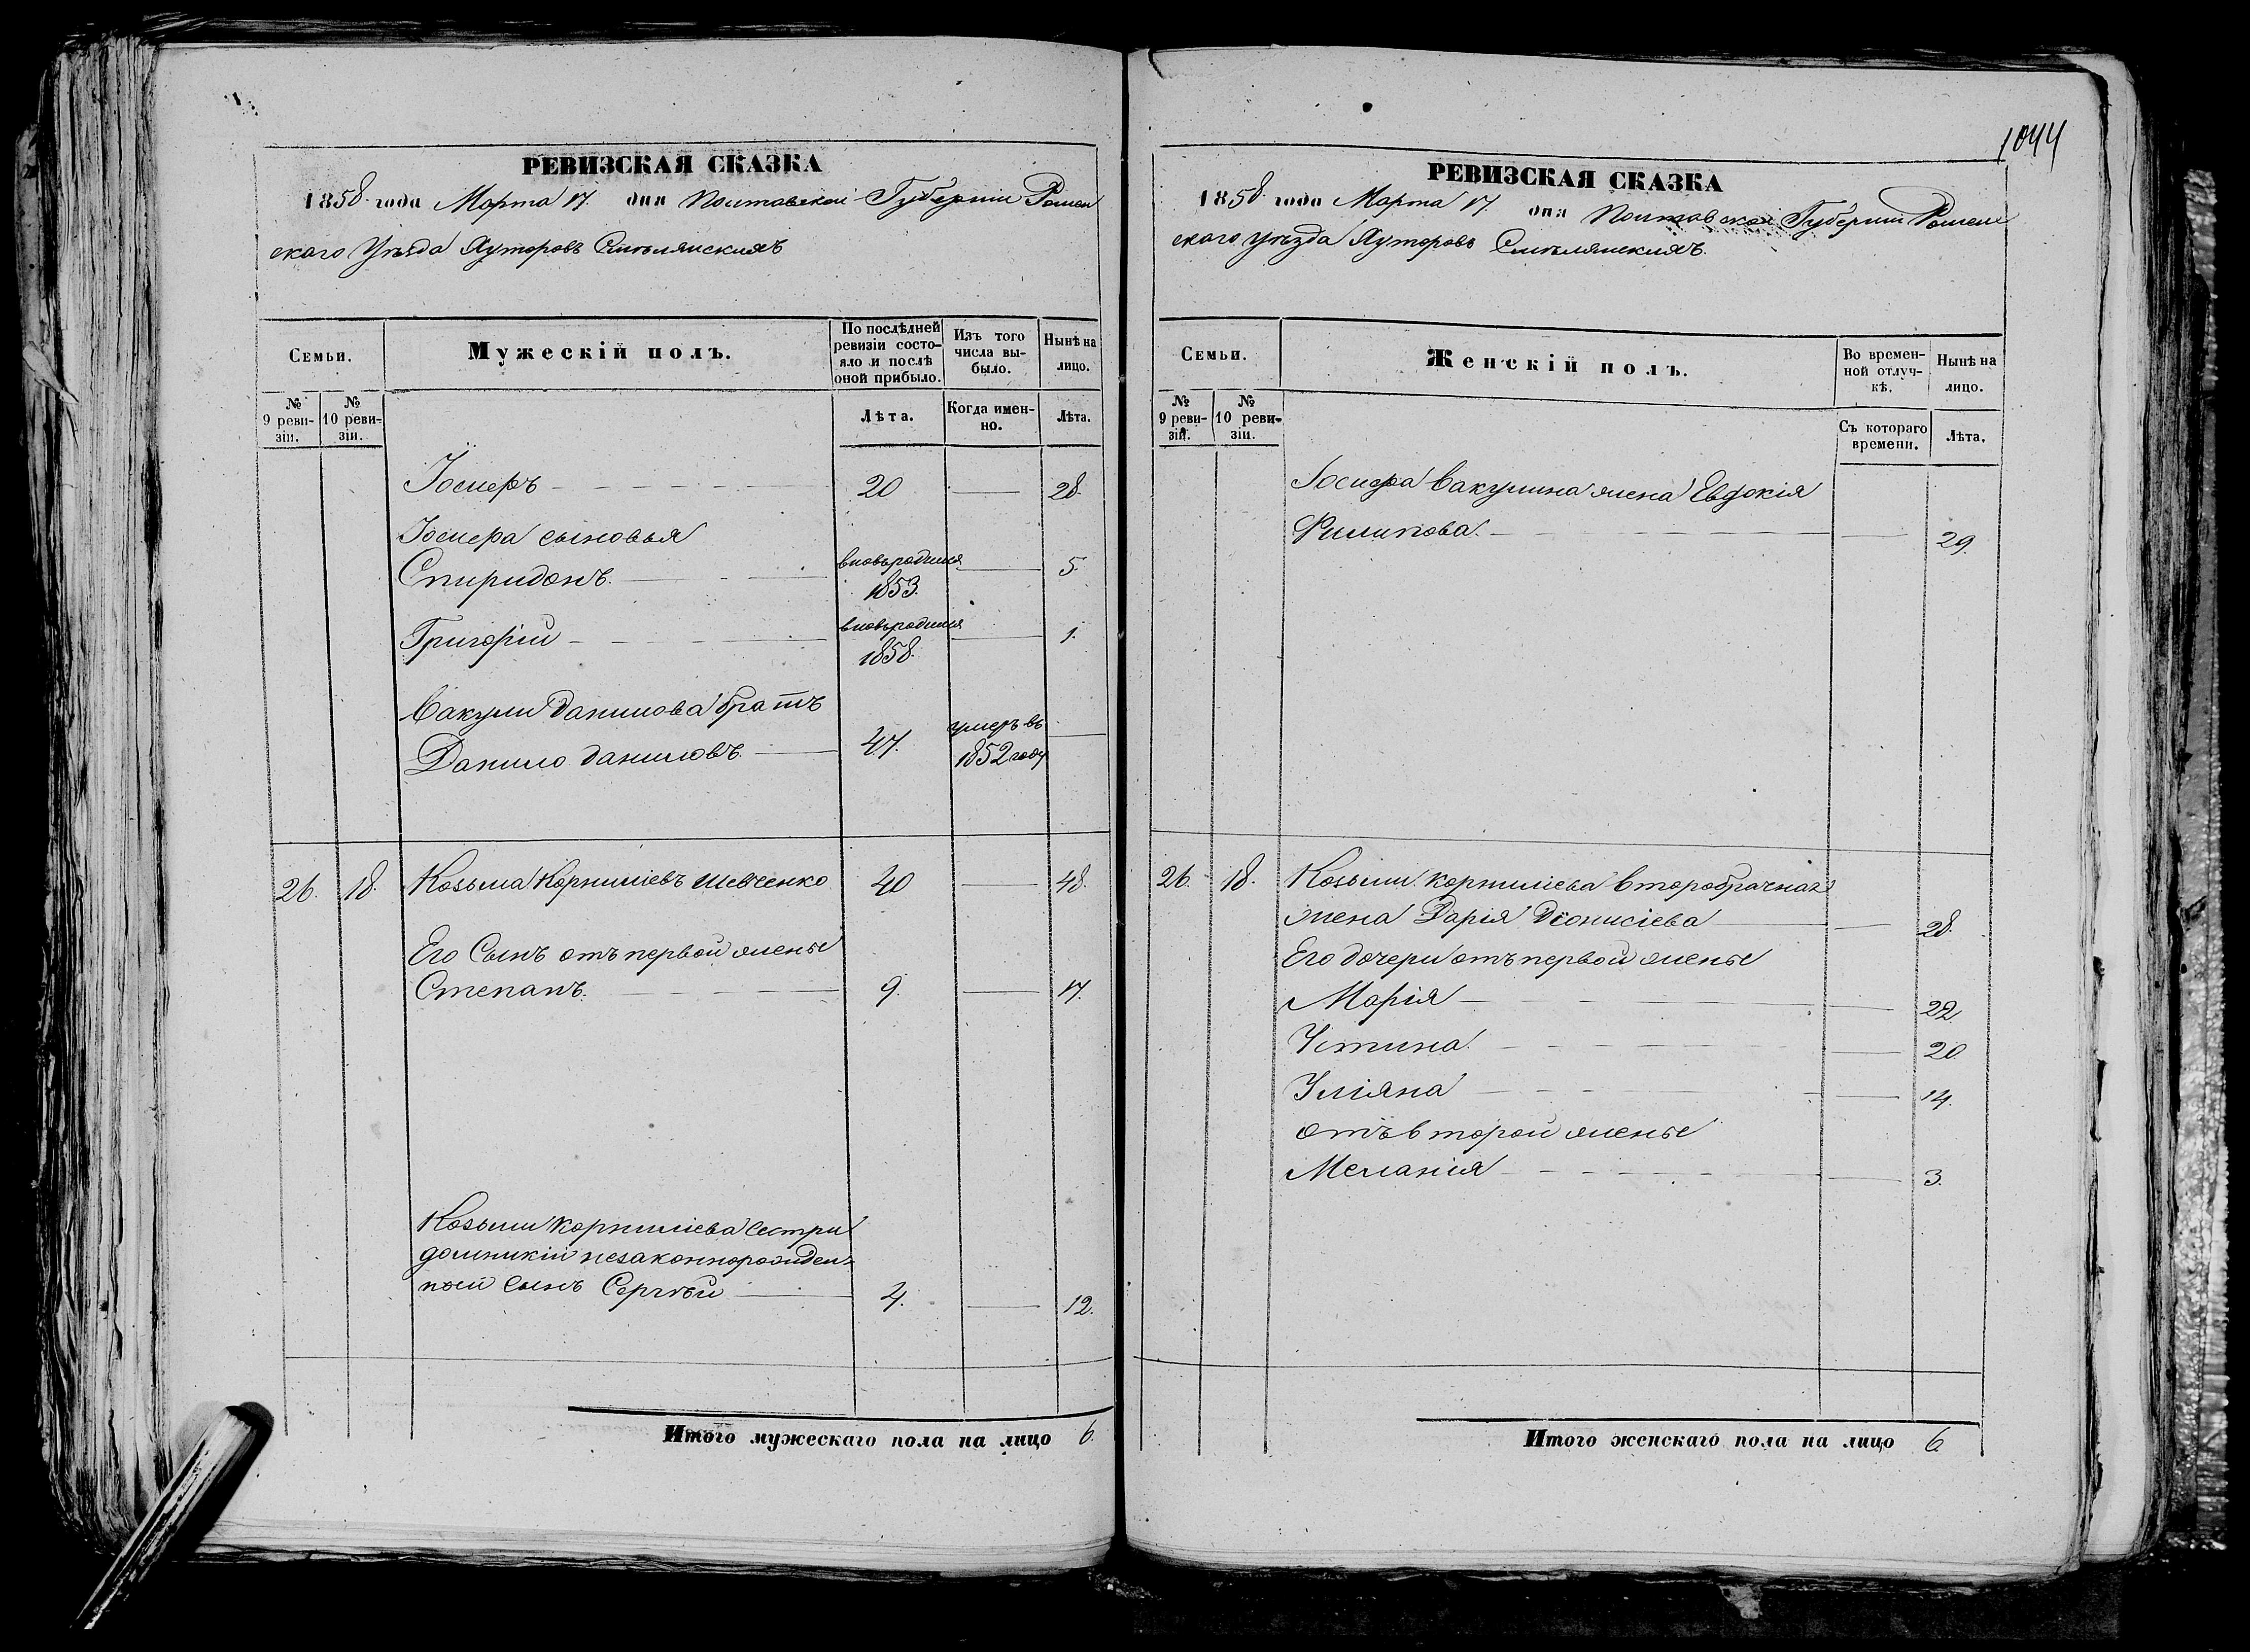 РЕВИЗСКАЯ СКАЗКА
1858 года Марта 17. дня Полтавской Губерніи Ромен
скаго Уѣзда Хуторовъ Смѣлянскихъ
Семьи.
Мужескій полъ.
По послѣдней ревизіи состо-
яло и послѣ
оной прибыло.
Изъ того
числа вы-
было.
Нынѣ на
лицо.
№
9 реви-
зіи.
№
10 реви-
зіи.
Лѣта.
Когда имен-
но.
Лѣта.
Іосифъ 20 28.
Іосифа сыновья
Спиридонъ. вновьродился 1853. 5.
Григорій вновьродился 1858. 1.
Вакулы Данилова братъ
Данило Даниловъ. 47. умеръ въ 1852 году
26. 18. Козьма Корниліевъ Шевченко 40 48.
Его Сынъ отъ первой жены
Степанъ. 9. 17.
Козьмы Корниліева Сестры
Домникіи незаконнорожден-
ный Сынъ Сергѣй 4. 12.
Итого мужескаго пола на лицо 6.
1044
РЕВИЗСКАЯ СКАЗКА
1858. года Марта 17. дня Полтавской Губерніи Ромен
скаго Уѣзда Хуторовъ Смѣлянскихъ.
Семьи.
Женскій полъ.
Во времен-
ной отлуч-
кѣ.
Нынѣ на
лицо.
№
9 реви-
зіи.
№
10 реви-
зіи.
Съ котораго
времени.
Лѣта.
Іосифа Вакулина жена Евдокія
Филипова. 29.
26. 18. Козьмы Корниліева второбрачная
жена Дарія Діонисіева 28.
Его дочери отъ первой жены
Марія 22.
Устина. 20
Уліяна 14.
отъ второй жены
Меланія 3.
Итого женскаго пола на лицо 6